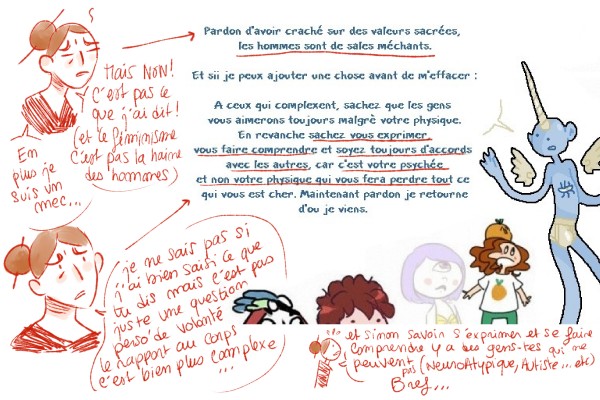 Pardon d'avoir craché sur des valeurs sacrées,
les hommes sont de sales méchants.
Et sii je peux ajouter une chose avant de m'effacer :
A ceux qui complexent, sachez que les gens
vous aimerons toujours malgrè votre physique.
En revanche sachez vous exprimer,
vous faire comprendre et soyez toujours d'accords
avec les autres, car c'est votre psychée
et non votre physique qui vous fera perdre tout ce
qui vous est cher. Maintenant pardon je retourne
d'ou je viens.
Mais NON!
C'est pas ce
que j'ai dit!
(et le féminisme
c'est pas la haine
des hommes)
En
plus je
suis un
mec...
je ne sais pas si
j'ai bien saisi ce que
tu dis mais c'est pas
juste une question
perso de volonté
le rapport au corps
c'est bien plus complexe
...
et sinon savoir s'exprimer et se faire
comprendre y a des gens·tes qui ne
peuvent pas (NeuroAtypique, Autiste... etc)
Bref...